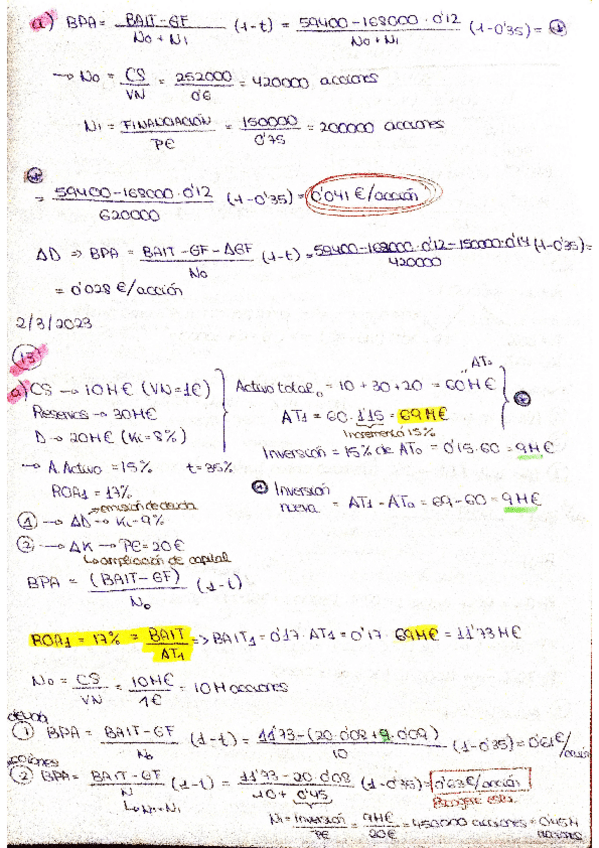 a) BPA = BAIT-GF / No + N1 (1-t) = 59400-168000·0'12 / No + N1 (1-0'35) = *
→ No = CS / VN = 252000 / 0'6 = 420000 acciones
N1 = FINANCIACIÓN / PE = 150000 / 0'75 = 200000 acciones
*
= 59400-168000·0'12 / 620000 (1-0'35) = 0'041 €/acción
ΔD ⇒ BPA = BAIT-GF-ΔGF / No (1-t) = 59400-168000·0'12-150000·0'14 / 420000 (1-0'35) =
= 0'028 €/acción
2/3/2023
13
a) CS → 10M€ (VN=1€)
Reservas → 30M€
D → 20M€ (Ki=8%)
Activo total₀ = 10+30+20 = 60M€ " AT₀
AT1 = 60·1'15 = 69M€
Incremento 15%
Inversión = 15% de AT₀ = 0'15·60 = 9M€
*
→ Δ. Activo = 15% t=35%
ROA1 = 17%
→ emisión de deuda
① → ΔD → Ki=9%
② → ΔK → PE=20€
↳ ampliación de capital
* Inversión nueva = AT1 - AT₀ = 69-60 = 9M€
BPA = (BAIT-GF) / N₀ (1-t)
ROA1 = 17% = BAIT / AT1 => BAIT1 = 0'17·AT1 = 0'17·69M€ = 11'73M€
N₀ = CS / VN = 10M€ / 1€ = 10M acciones
deuda
① BPA = BAIT-GF / N₀ (1-t) = 11'73-(20·0'08+9·0'09) / 10 (1-0'35) = 0'61€/acción
acciones
② BPA = BAIT-GF / N (1-t) = 11'73-20·0'08 / 10+0'45 (1-0'35) = 0'63€/acción
↳ N₀+N1
Escogere esta
N1 = Inversión / PE = 9M€ / 20€ = 450000 acciones = 0'45M acciones